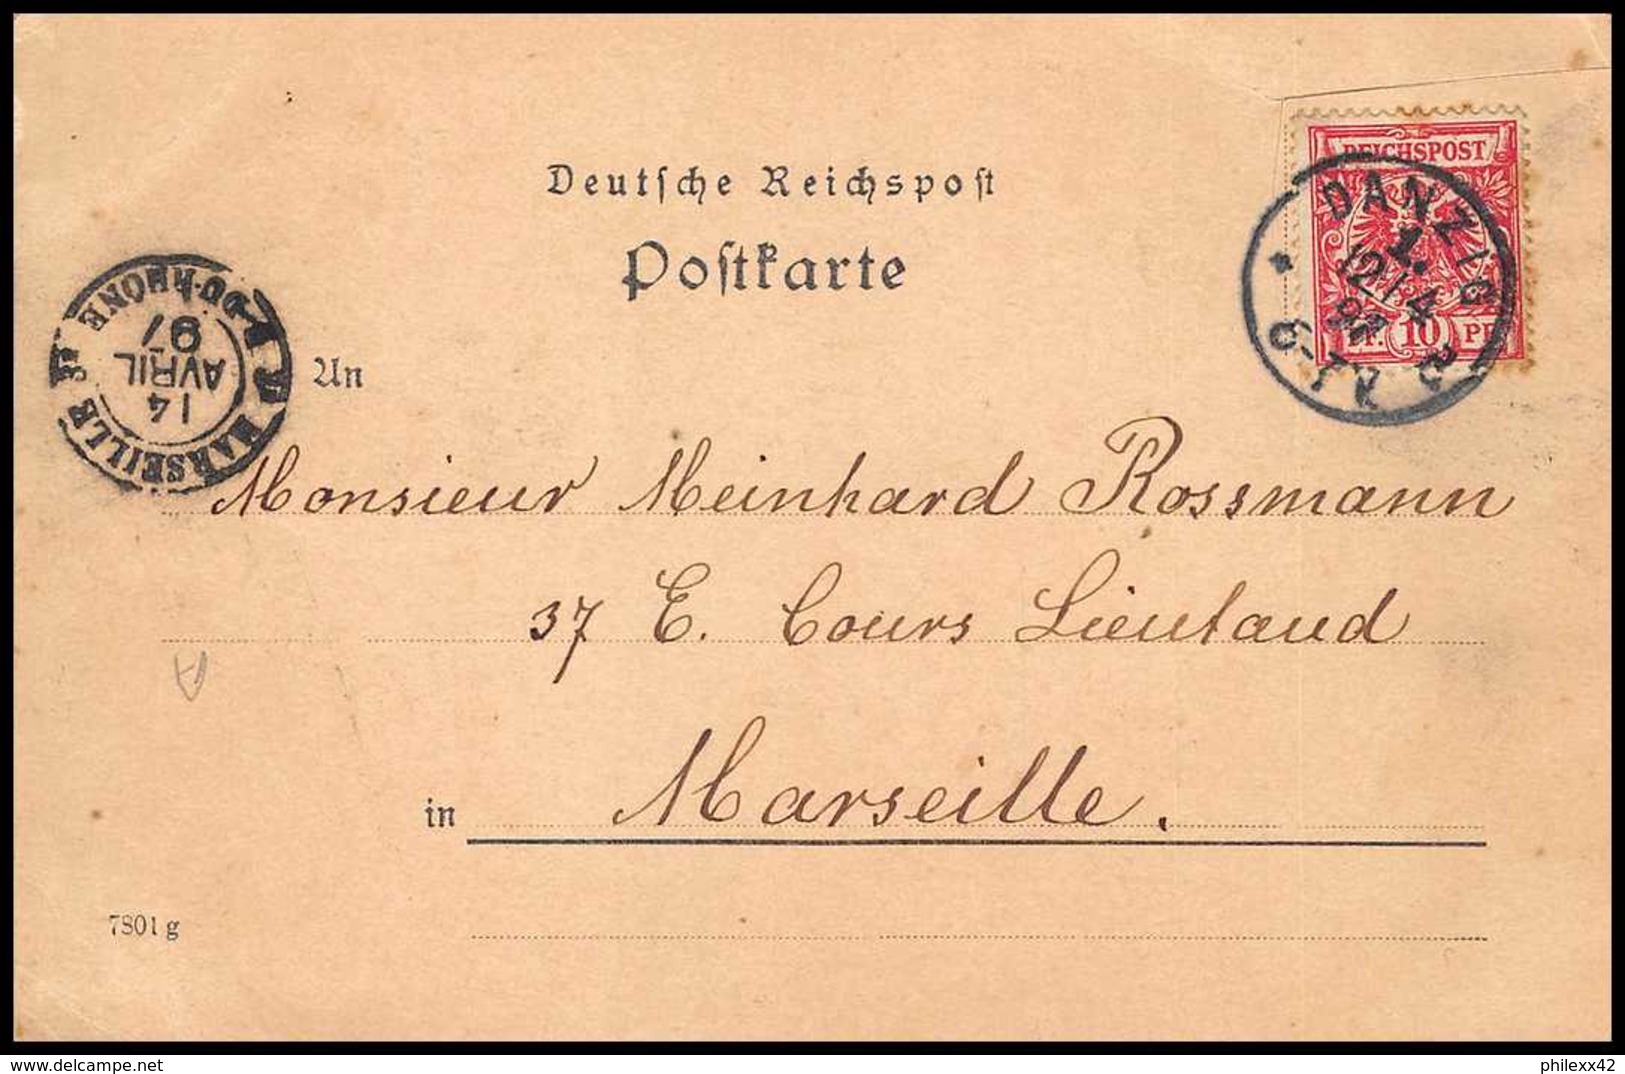 Deutsche Reichspost
Postkarte
REICHSPOST
PF. 10 PF
DANZIG
1.
12/4
97
MARSEILLE
DU-RHONE
14
AVRIL
97
An
Monsieur Meinhard Rossmann
37 E. Cours Lieutaud
in Marseille.
7801 g
philexx42